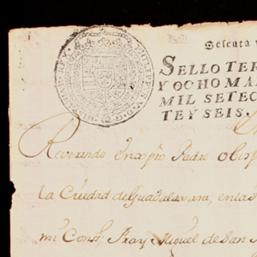 Sesenta y
SELLO TER
Y OCHO MA
MIL SETEC
TE Y SEIS.
Reverendo Padre Obis
la Ciudad de Guadalaxara, en las
mi Consº, Fray Miguel de San